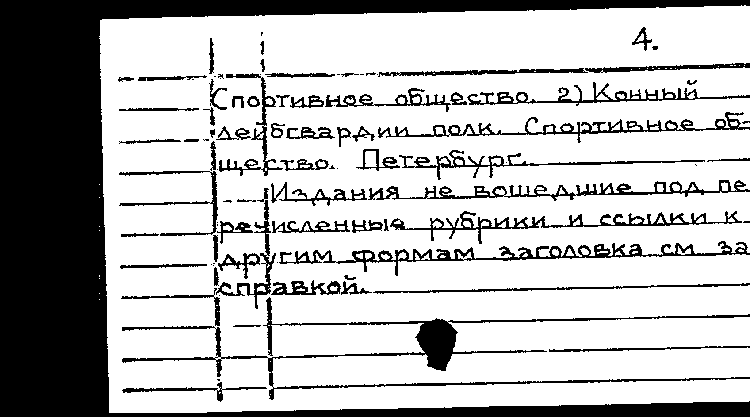 4.
Спортивное общество. 2) Конный
лейбгвардии полк. Спортивное об-
щество. Петербург.
Издания не вошедшие под пе
речисленные рубрики и ссылки к
другим формам заголовка см за
справкой.